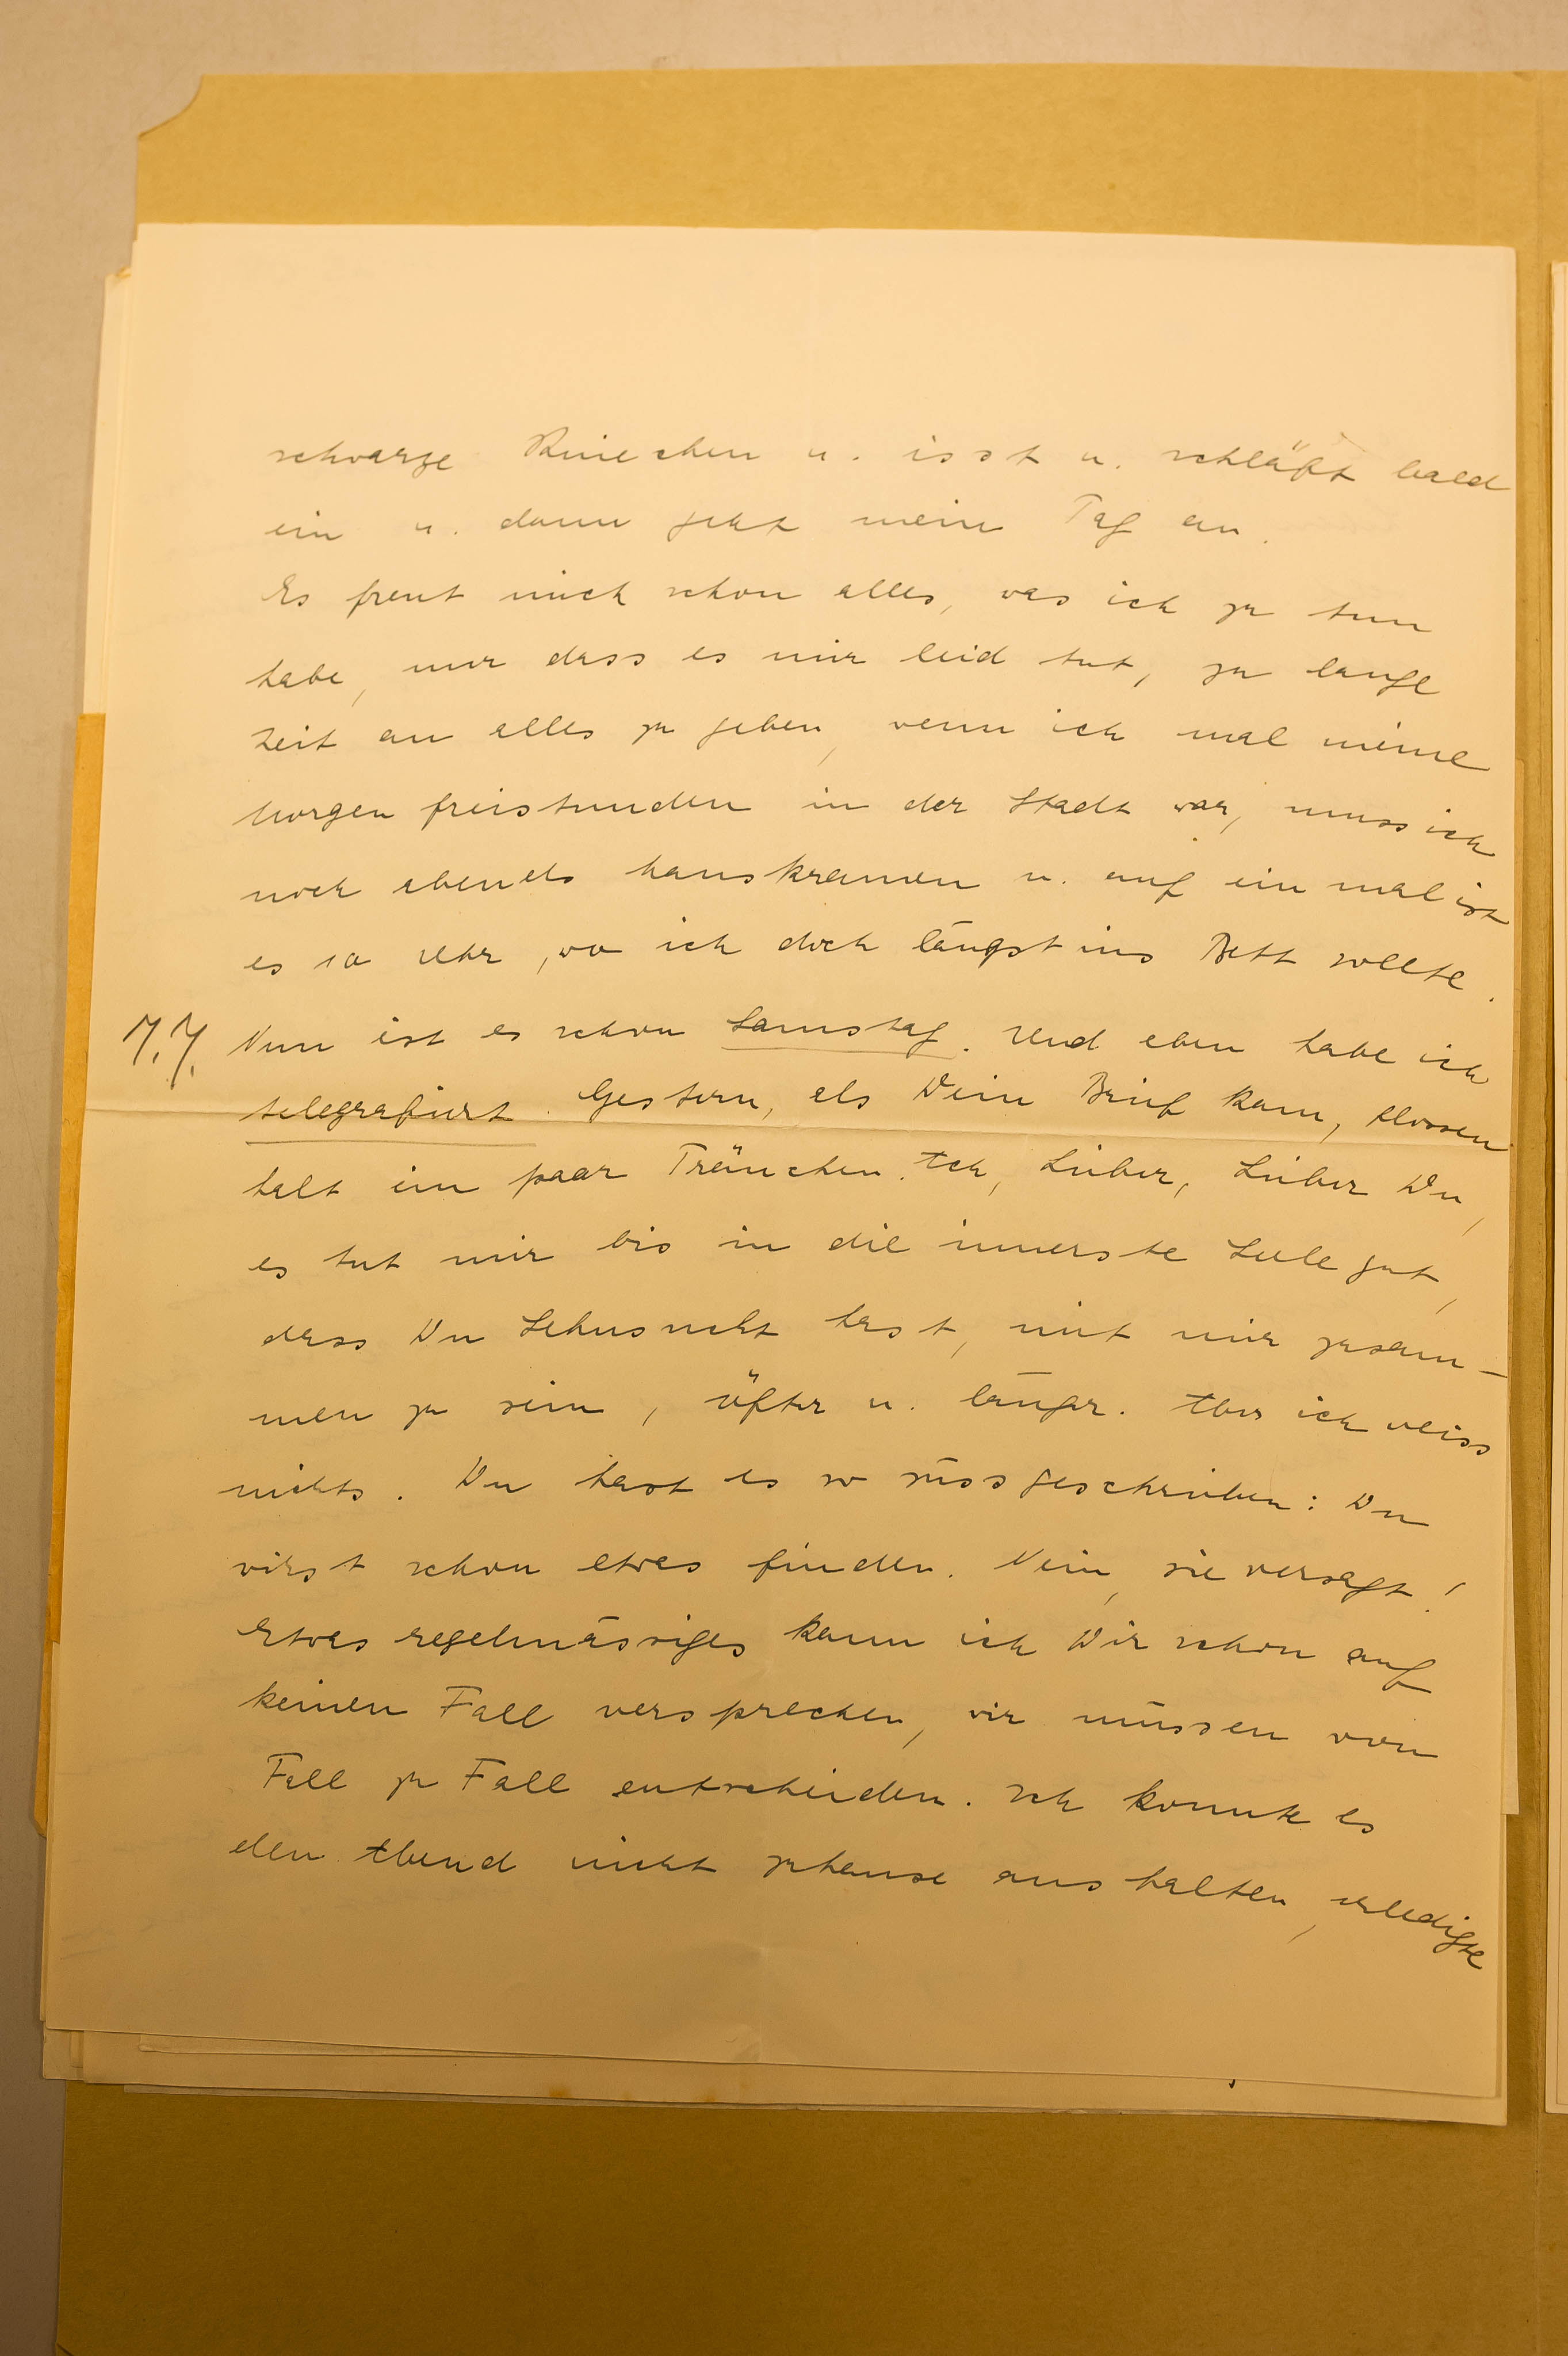 schwarze Kniechen u. isst u. schläft bald
ein u. dann geht mein Tag an.
Es freut mich schon alles, was ich zu tun
habe, nur dass es mir leid tut, zu lange
Zeit an alles zu geben, wenn ich mal meine
Morgen freistunden in der Stadt war, muss ich
noch abends hauskramen u. auf ein mal ist
es 10 Uhr, wo ich doch längst ins Bett sollte.
7.7. Nun ist es schon Samstag. Und eben habe ich
telegrafiert. Gestern, als Dein Brief kam, flossen
halt ein paar Tränchen. Ach, Lieber, Lieber Du,
es tut mir bis in die innerste Seele gut,
dass Du Sehnsucht hast, mit mir zusam-
men zu sein, öfter u. länger. Aber ich weiss
nichts. Du hast es so süss geschrieben: Du
wirst schon etwas finden. Nein, sie versagt!
Etwas regelmässiges kann ich Dir schon auf
keinen Fall versprechen, wir müssen von
Fall zu Fall entscheiden. Ich konnte es
den Abend nicht zuhause aushalten, erledigte